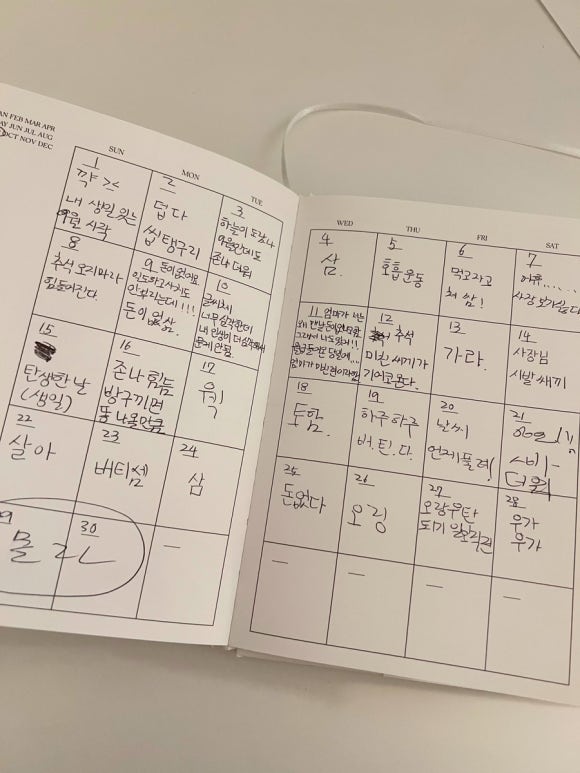 AN FEB MAR APR
AY JUN JUL AUG
OCT NOV DEC
SUN
MON
TUE
WED
THU
FRI
SAT
1
꺅 ><
내 생일 있는
9월 시작
2
덥다
씹탱구리
3
하늘이 도랐나
9월인데도
존나 더워
4
삼.
5
호흡운동
6
먹고자고
쳐 쌈!
7
어휴......
사장 보기싫다
8
추석 오지마라
힘들어진다.
9 돈이없어요
인도하고사지도
안보라는데!!!
돈이 없삼.
10
글씨체
너무심각한데
내 인생이 더 심각해서
문제 안됨.
11 엄마가 너는
왜 맨날 돈이없냐고함
그래서 나도 알게!!
엄마가 미친년이라함
12
추석
미친 새끼가
기어코온다.
13
가라.
14
사장님
시발 쌔끼
15
탄생한 날
(생일)
16
존나 힘듬
방구끼면
똥 나올만큼
17
윅
18
토함.
19
하루하루
버.틴.다.
20
날씨
언제풀려!
21
시비
더워
22
살아
23
버티셈
24
삼
25
돈없다
26
오링
27
오랑우탄
되기 일보직전
28
우가
우가
9
30
몰ㄹㄴ
—
—
—
—
—